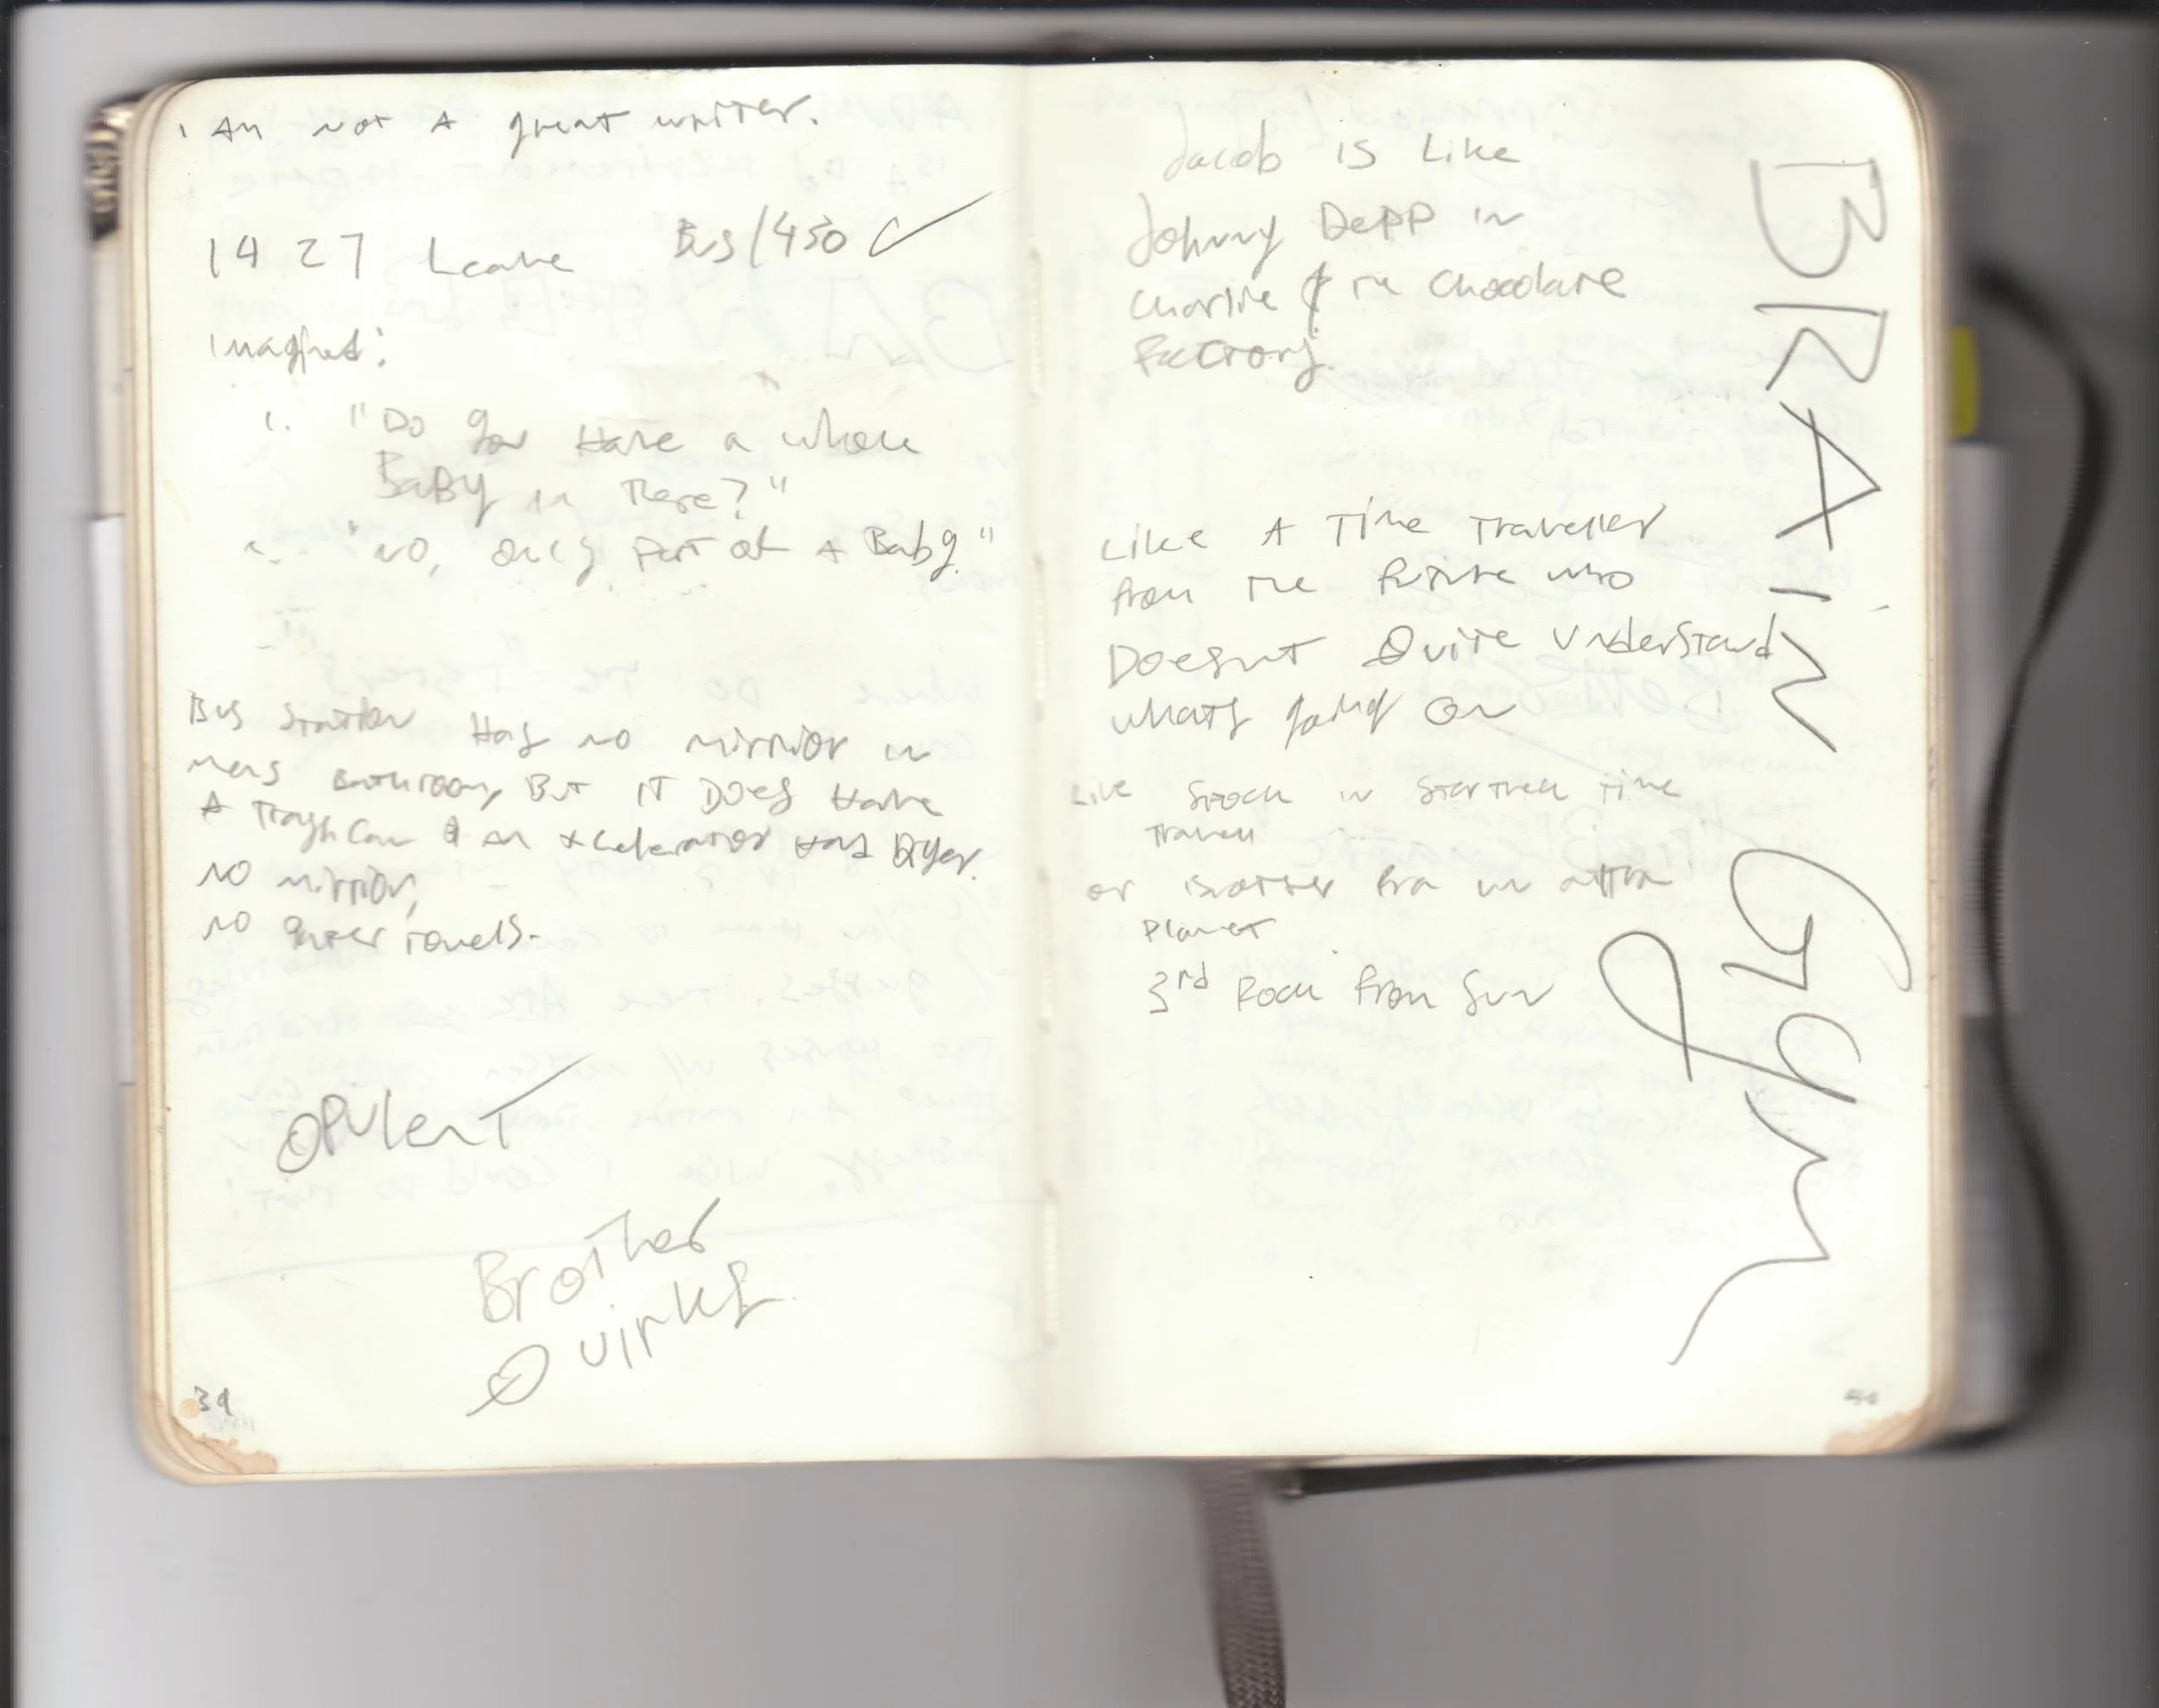 I Am not A great writer.
1427 Leave Bus/450
Imagined:
1. "Do you Have a whole
BaBy in There?"
2. "NO, only Part of A Baby."
Bus Station Has no mirrior in
mens Bathroom, But IT Does Have
A Trash Can & an xcelerator Hand Dryer.
NO mirrior,
NO Paper Towels.
OPULenT
BroTher
Quirks
39
Jacob is Like
Johnny Depp in
Charlie & The Chocolate
Factory.
Like A Time Traveller
from The future who
Doesnt Quite Understand
whats going On
Like Spock in StarTrek Time
Travel
or Brother from
Planet
3rd Rock from Sun
BRAIN GYm
40